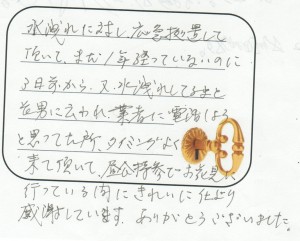 水洩れに対し応急処置して
頂いて、まだ1年経っていないのに
3日前から、又、水洩れしてるよと
長男に云われ、業者に電話しよう
と思ってた所、タイミングよく
来て頂いて、昼食持参でお花見に
行っている間にきれいに仕上り
感謝しています。ありがとうございました。